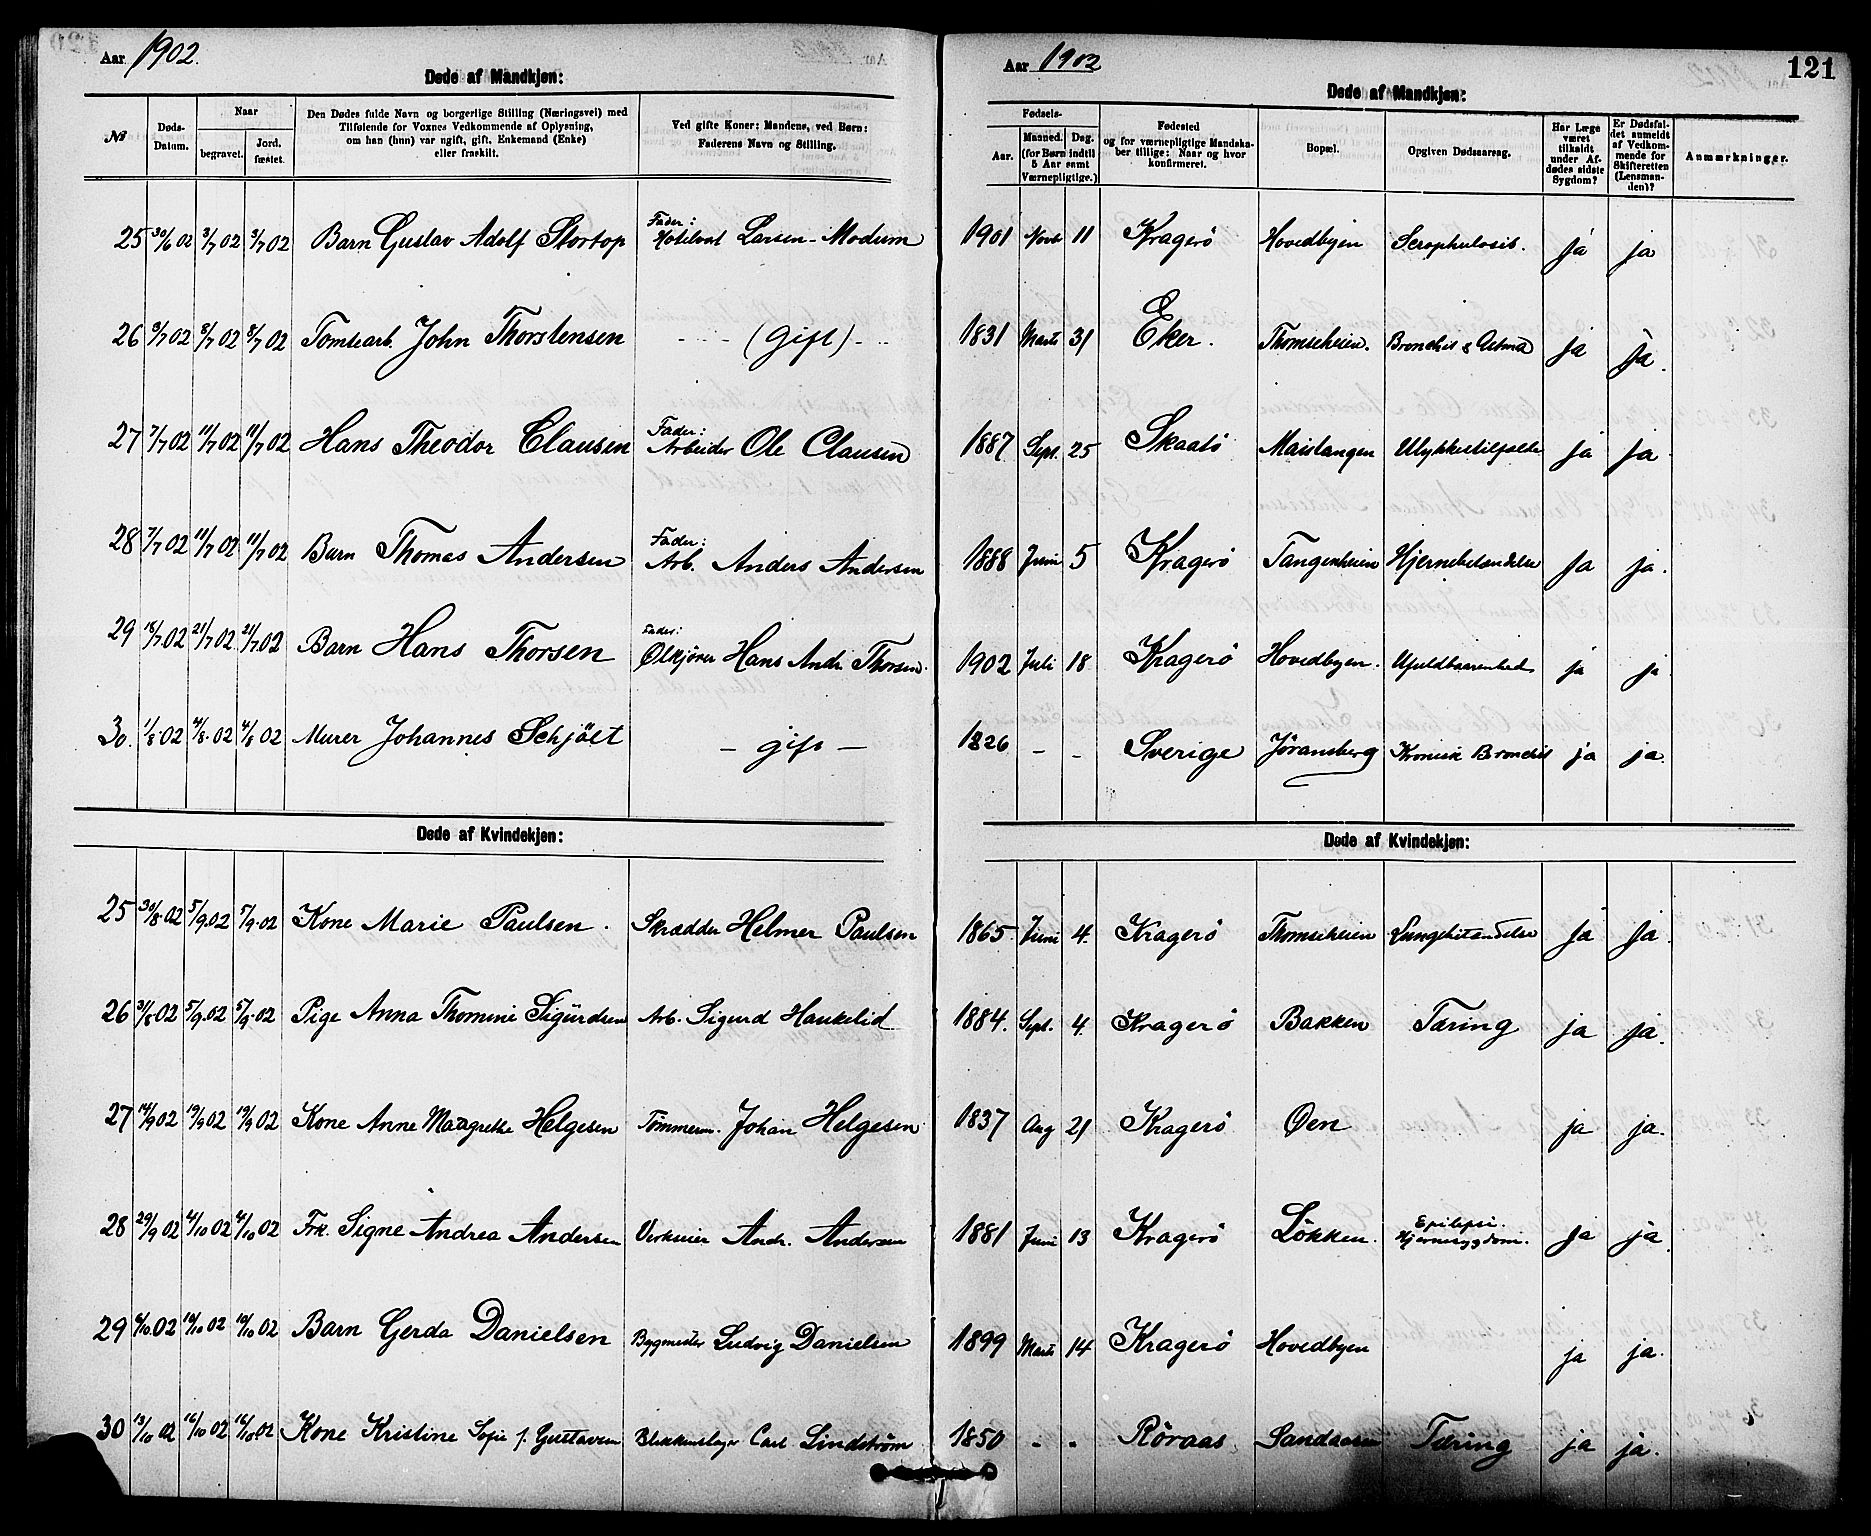 Aar 1902.
Døde af Mandkjøn:
№ Døds-Datum. Naar begravet. Jord. fæstet. Den Dødes fulde Navn og borgerlige Stilling (Næringsvei) med Tilføiende for Voxnes Vedkommende af Oplysning, om han (hun) var ugift, gift, Enkemand (Enke) eller fraskilt. Ved gifte Koner: Mandens, ved Børn: Faderens Navn og Stilling.
25 30/6 02 3/7 02 3/7 02 Barn Gustav Adolf Stortop Fader: Larsen-Modum
26 3/7 02 8/7 02 8/7 02 Tomtearb. John Thorstensen (gift)
27 7/7 02 11/7 02 11/7 02 Hans Theodor Clausen Fader: Arbeider Ole Clausen
28 7/7 02 11/7 02 11/7 02 Barn Thomas Andersen Fader: Arb. Anders Andersen
29 18/7 02 21/7 02 21/7 02 Barn Hans Thorsen Fader: Ølkjører Hans Andr Thorsen.
30. 1/8 02 4/8 02 4/8 02 Murer Johannes Schjölt - gift -
Døde af Kvindekjøn:
25 30/8 02 5/9 02 5/9 02 Kone Marie Paulsen. Skrædder Helmer Paulsen
26 31/8 02 5/9 02 5/9 02 Pige Anna Thomine Sigurdsen Arb. Sigurd Haukelid
27 14/9 02 19/9 02 19/9 02 Kone Anne Margrethe Helgesen Tömmerm. Johan Helgesen
28 29/9 02 4/10 02 4/10 02 Frk. Signe Andrea Andersen Verkseier Andr. Andersen
29 6/10 02 10/10 02 10/10 02 Barn Gerda Danielsen Bygmester Ludvig Danielsen
30 13/10 02 16/10 02 16/10 02 Kone Kristine Sofie f. Gustavsen Blikkenslager Carl Lindström
Aar 1902
121
Døde af Mandkjøn:
Fødsels- Aar. Maaned. Dag. (for Børn indtil 5 Aar samt Værnepligtige.) Fødested og for værnepligtige Mandskaber tillige: Naar og hvor konfirmeret. Bopæl. Opgiven Dødsaarsag. Har Læge været tilkaldt under Afdødes sidste Sygdom? Er Dødsfaldet anmeldt af Vedkommende for Skifteretten (Lensmanden)? Anmærkninger.
1901 Novb 11 Kragerö Hovedbyen Scrophulosis. ja ja
1831 Marts 31 Eker. Thomseheien. Bronchit & Astma ja ja.
1887 Sept. 25 Skaatö Maislangen Ulykkestilfælde ja ja
1888 Juni 5 Kragerö Tangenheien Hjernebetændelse ja ja.
1902 Juli 18 Kragerö Hovedbyen. Ufuldbaarenhed ja ja
1826 - - Sverige Jøransberg Kronisk Bronchit ja ja.
Døde af Kvindekjøn:
1865 Juni 4. Kragerö Thomseheien Lungebetændelse ja ja.
1884. Sept. 4. Kragerö Bakken Tæring ja ja.
1837 Aug 21 Kragerö Øen ja ja.
1881 Juni 13 Kragerö Lökken. Epilepsi. Hjernesygdom. ja ja.
1899 Marts 14 Kragerö Hovedbyen ja ja.
1850 - - Röraas Sandaasen Tæring ja ja.